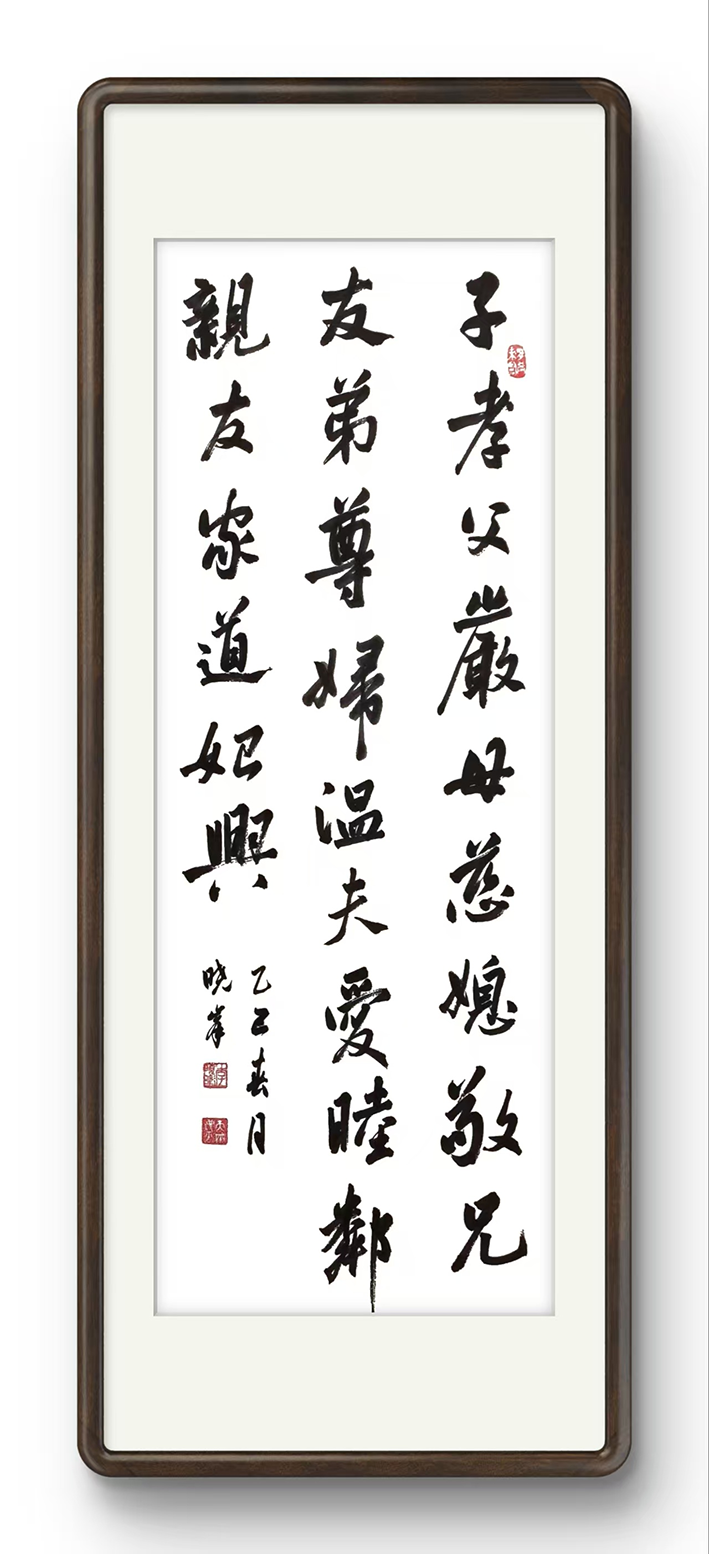 子孝父嚴母慈媳敬兄
友弟尊婦温夫愛睦鄰
親友家道興
乙巳春月
晓峯